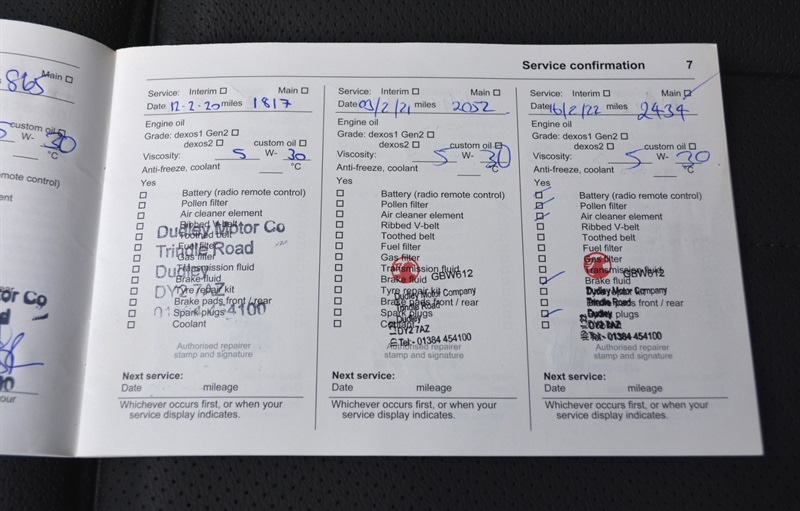 Service confirmation 7
865 Main
custom oil
W- 30
°C
mote control)
Service: Interim Main
Date 12-2-20 miles 1817
Engine oil
Grade: dexos1 Gen2
dexos2 custom oil
Viscosity: 5 W- 30
Anti-freeze, coolant °C
Yes
Battery (radio remote control)
Pollen filter
Air cleaner element
Ribbed V-belt
Toothed belt
Fuel filter
Gas filter
Transmission fluid
Brake fluid
Tyre repair kit
Brake pads front / rear
Spark plugs
Coolant
Dudley Motor Co
Trindle Road
Dudley
DY2 7AZ
4100
Authorised repairer
stamp and signature
Next service:
Date mileage
Whichever occurs first, or when your
service display indicates.
Service: Interim Main
Date 03/2/21 miles 2052
Engine oil
Grade: dexos1 Gen2
dexos2 custom oil
Viscosity: 5 W- 30
Anti-freeze, coolant °C
Yes
Battery (radio remote control)
Pollen filter
Air cleaner element
Ribbed V-belt
Toothed belt
Fuel filter
Gas filter
Transmission fluid
Brake fluid
Tyre repair kit
Brake pads front / rear
Spark plugs
Coolant
GBW612
Dudley Motor Company
Trindle Road
Dudley
DY2 7AZ
Tel:- 01384 454100
Authorised repairer
stamp and signature
Next service:
Date mileage
Whichever occurs first, or when your
service display indicates.
Service: Interim Main
Date 16/2/22 miles 2434
Engine oil
Grade: dexos1 Gen2
dexos2 custom oil
Viscosity: 5 W- 20
Anti-freeze, coolant °C
Yes
Battery (radio remote control)
Pollen filter
Air cleaner element
Ribbed V-belt
Toothed belt
Fuel filter
Gas filter
Transmission fluid
Brake fluid
pads front / rear
plugs
GBW612
Dudley Motor Company
Trindle Road
Dudley
DY2 7AZ
Tel:- 01384 454100
Authorised repairer
stamp and signature
Next service:
Date mileage
Whichever occurs first, or when your
service display indicates.